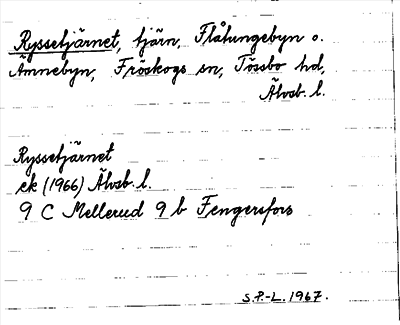 Ryssetjärnet, tjärn, Flåtungebyn o.
Ämnebyn, Fröskogs sn, Tössbo hd,
Älvsb. l.
Ryssetjärnet
ek (1966) Älvsb. l.
9 C Mellerud 9 b Fengersfors
S.P.-L. 1967.